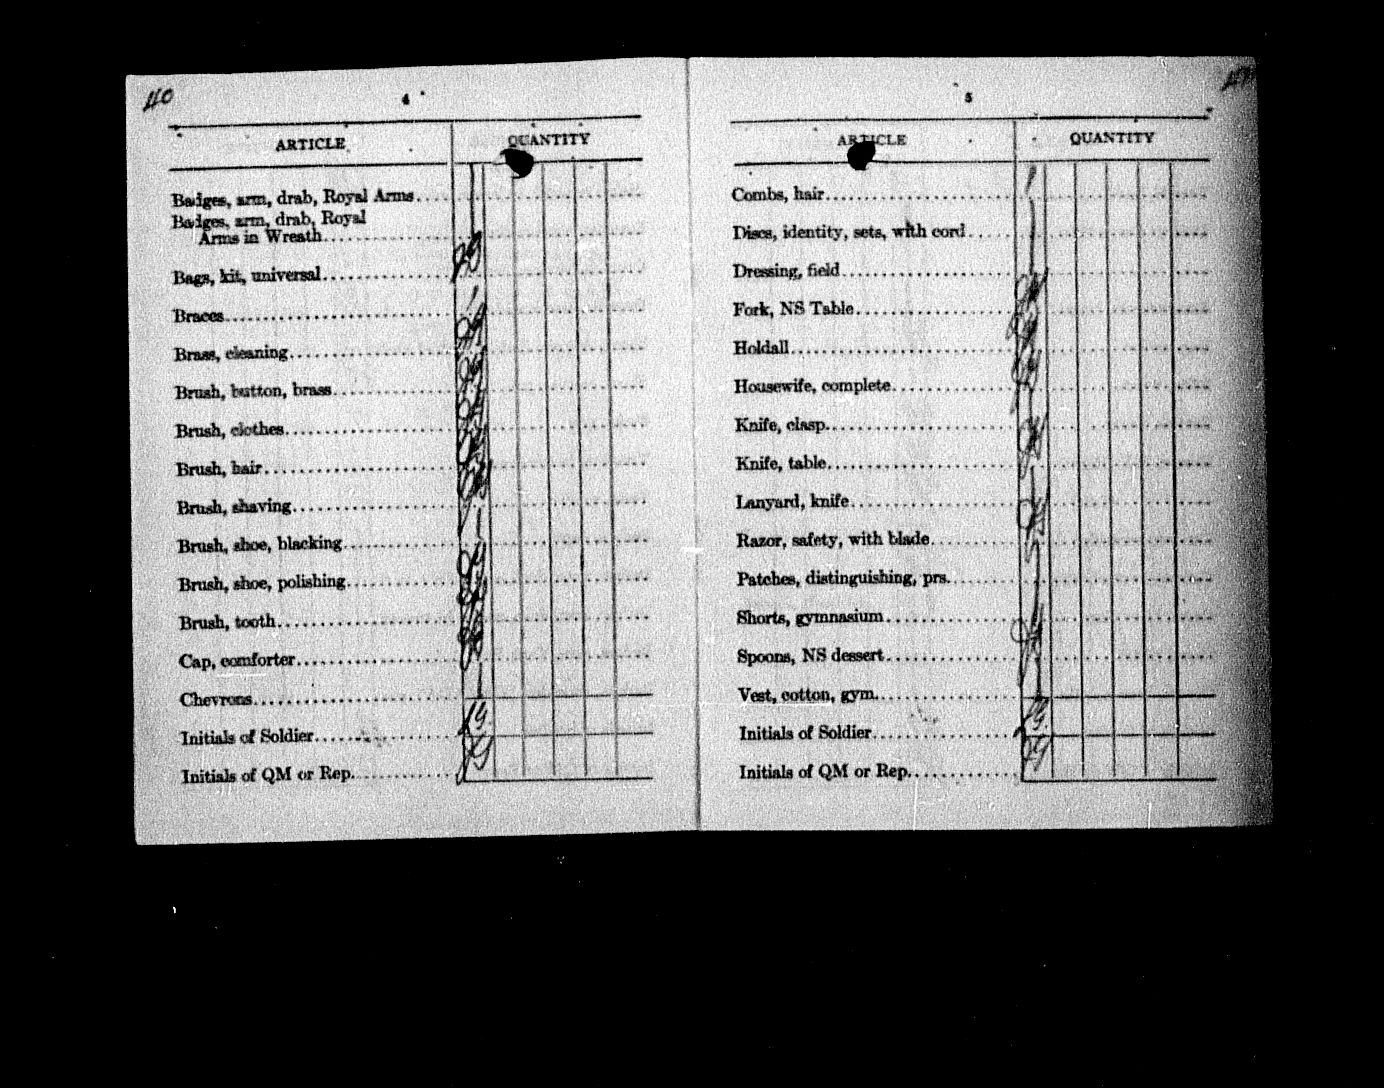 40
4
ARTICLE QUANTITY
Badges, arm, drab, Royal Arms
Badges, arm, drab, Royal
Arms in Wreath
Bags, kit, universal
Braces
Brass, cleaning
Brush, button, brass
Brush, clothes
Brush, hair
Brush, shaving
Brush, shoe, blacking
Brush, shoe, polishing
Brush, tooth
Cap, comforter
Chevrons
Initials of Soldier
Initials of QM or Rep.
5
ARTICLE QUANTITY
Combs, hair
Discs, identity, sets, with cord
Dressing, field
Fork, NS Table
Holdall
Housewife, complete
Knife, clasp
Knife, table
Lanyard, knife
Razor, safety, with blade
Patches, distinguishing, prs.
Shorts, gymnasium
Spoons, NS dessert
Vest, cotton, gym.
Initials of Soldier
Initials of QM or Rep.